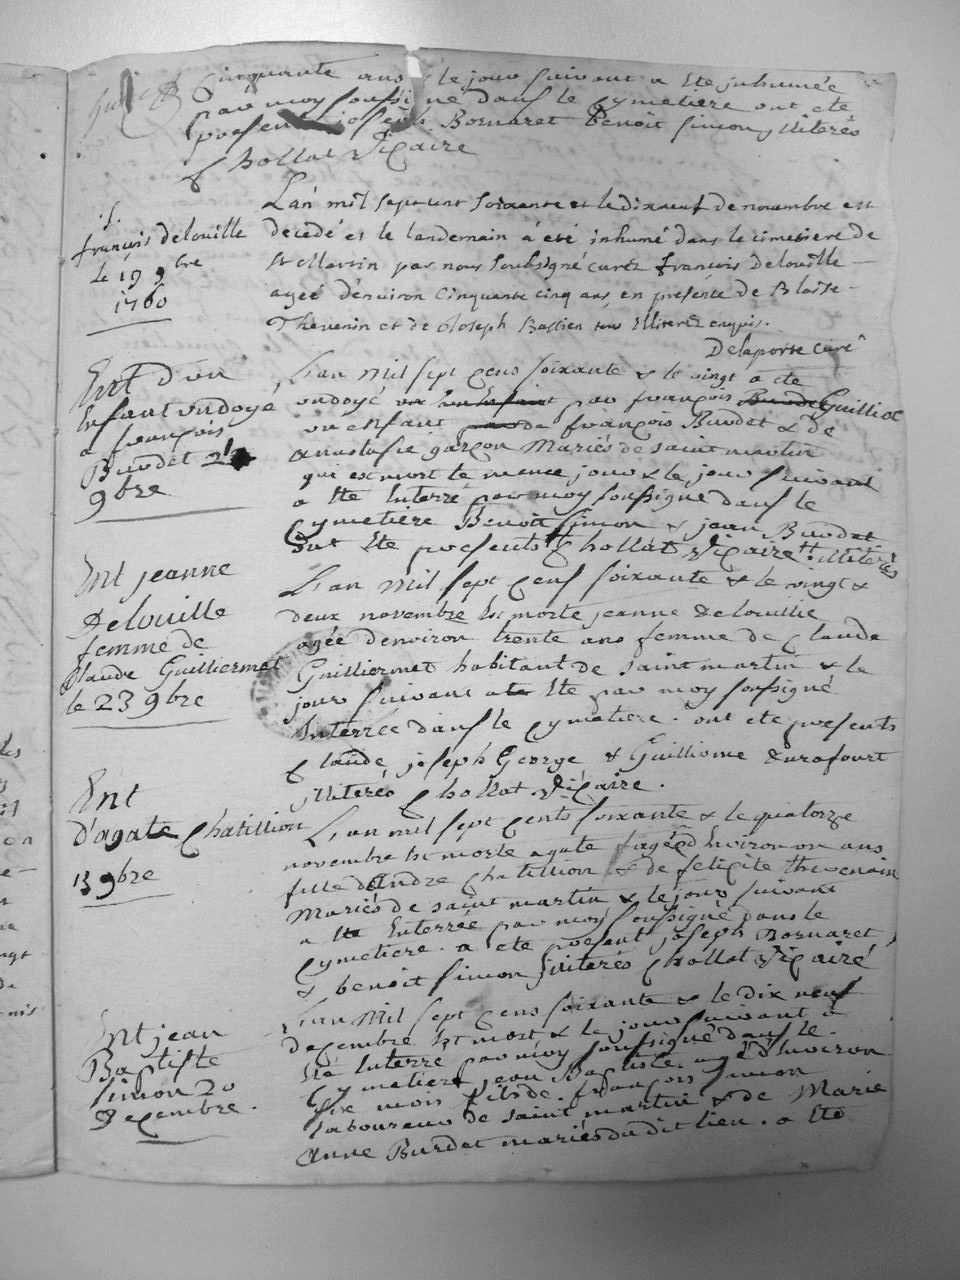 Cinquante ans & le jour suivant a Ete jnhumée
par moy soussigné dans le Cymetiere ont ete
presents joseph Bornaret benoit simon jlliterés
Chollat Vicaire
françois delouille
le 19 9bre
1760
L'an mil sept cent soixante et le dixneuf de novembre est
decedé et le landemain a été inhumé dans le cimetiere de
st Martin par nous soubsigné curéz françois Delouille
ageé d'environ cinquante cinq ans, en presence de Blaise
Thevenin et de Joseph Bastien tous Illiterez enquis.
Delaporte curé
Ent d'un
Enfant ondoyé
a françois
Burdet
9bre
L'an Mil sept Cens soixante & le vingt a ete
ondoyé par françois Guilliot
un enfant de françois Burdet & de
anastasie garçon Mariés de saint martin
qui est mort le meme jour & le jour suivant
a Ete Enterré par moy soussigné dans le
Cymetiere Benoit Simon & jean Burdet
ont Ete presents Chollat Vicaire illiterés
Ent jeanne
Delouille
femme de
Claude Guilliermet
le 23 9bre
L'an Mil sept Cens soixante & le vingt &
deux novembre Est morte jeanne Delouille
agée denviron trente ans femme de Claude
Guilliermet habitant de saint martin & le
jour suivant a Ete par moy soussigné
Enterrée dans le Cymetiere. ont ete presents
Claude joseph George & Guillome Durafourt
jlliterés Chollat Vicaire.
Ent
D'agate Chatillion
15 9bre
L'an mil sept Cents soixante & le quatorze
novembre Est morte agate agée d'Environ un ans
fille d'Andre Chatillion & de felicite thevenain
Mariés de saint martin & le jour suivant
a Ete Enterrée par moy soussigné dans le
Cymetiere. a ete present joseph Bornaret,
& benoit simon jlliterés Chollat Vicairé
Ent jean
Baptiste
simon 20
Decembre.
L'an Mil sept Cens soixante & le dix neuf
decembre Est mort & le jour suivant a
Eté Enterré par moy soussigné dans le
Cymetiere jean Baptiste agé d'Environ
six mois fils de françois simon
laboureur de saint martin & de Marie
Anne Burdet mariés du dit lieu. a Ete